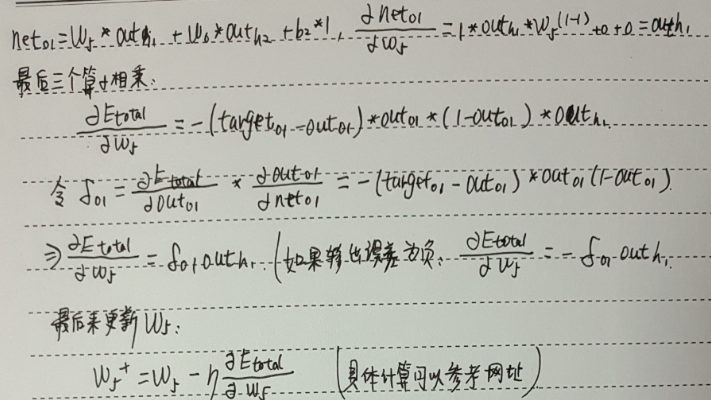 net₀₁=W₅*out h₁+W₆*out h₂+b₂*1, ∂net₀₁/∂w₅=1*out h₁*W₅⁽¹⁻¹⁾+0+0=out h₁
最后三个算子相乘:
∂Etotal/∂w₅=-(target₀₁-out₀₁)*out₀₁*(1-out₀₁)*out h₁
令 δ₀₁=∂Etotal/∂out₀₁*∂out₀₁/∂net₀₁=-(target₀₁-out₀₁)*out₀₁(1-out₀₁)
⇒∂Etotal/∂w₅=δ₀₁out h₁.(如果输出误差为负:∂Etotal/∂w₅=-δ₀₁out h₁
最后来更新W₅:
W₅⁺=W₅-η∂Etotal/∂w₅ (具体计算可以参考网址)